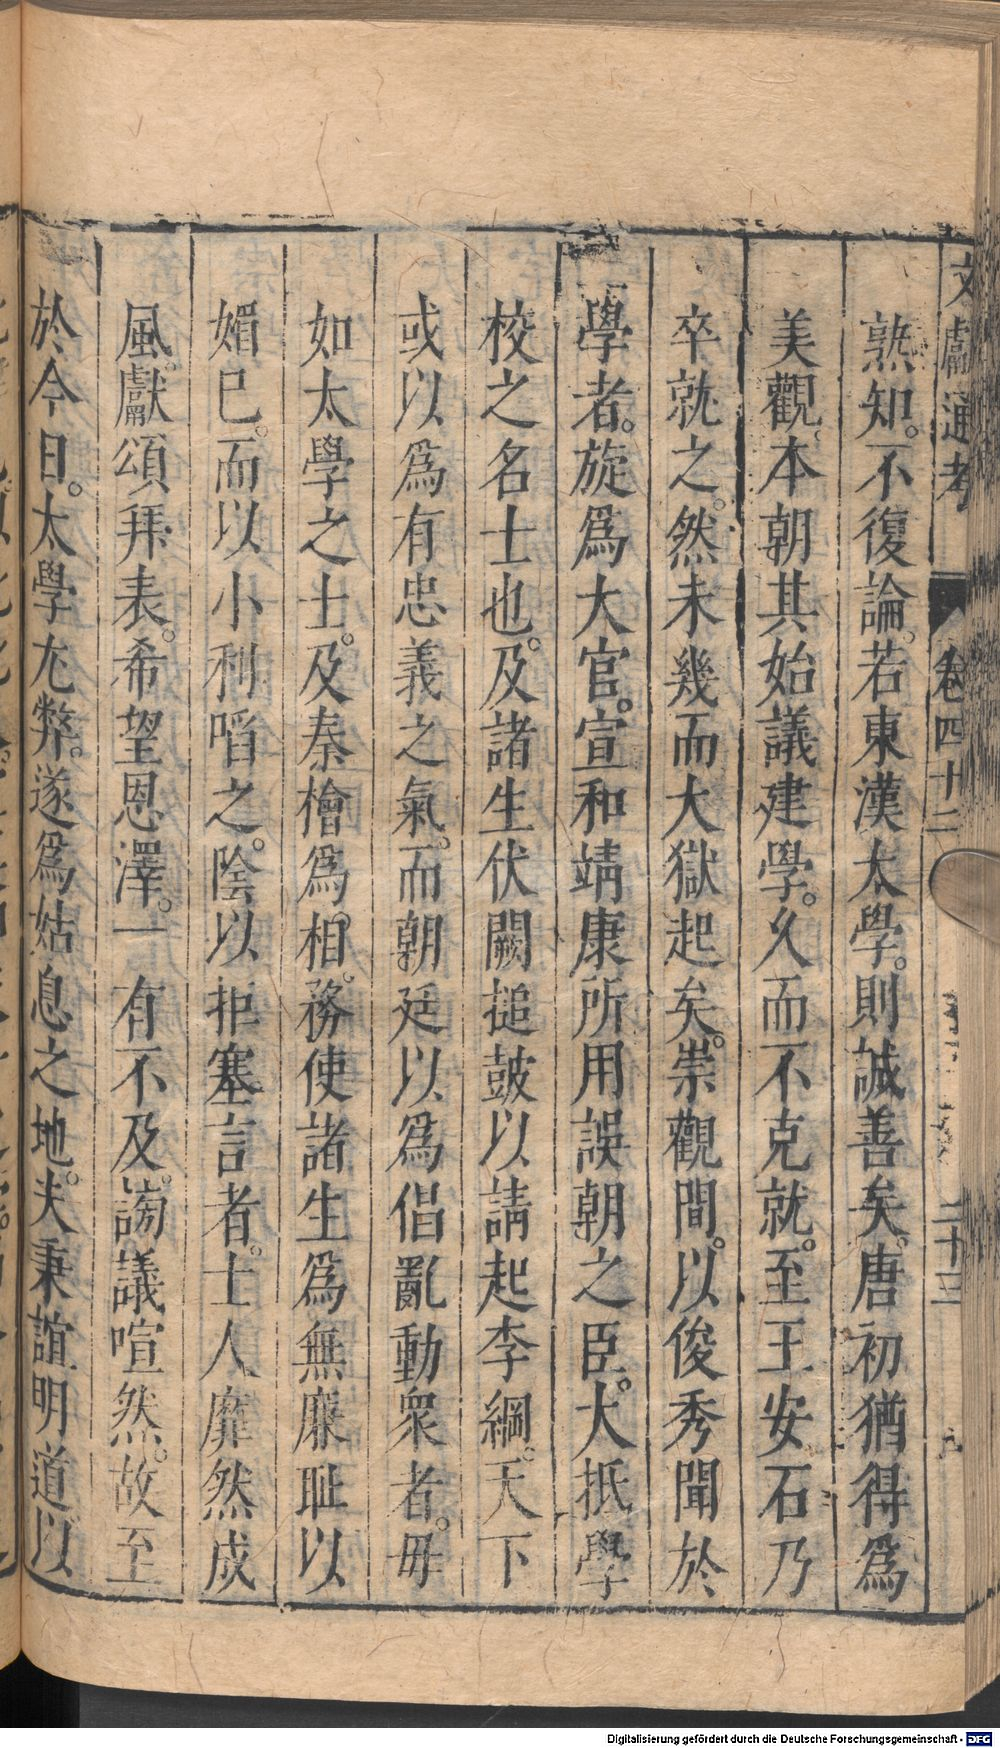 文獻通考 卷四十二 二十三
熟知。不復論。若東漢太學。則誠善矣。唐初猶得爲
美觀。本朝其始議建學。久而不克就。至王安石乃
卒就之。然未幾而大獄起矣。崇觀間。以俊秀聞於
學者。旋爲大官。宣和靖康所用誤朝之臣。大抵學
校之名士也。及諸生伏闕搥鼓以請起李綱。天下
或以爲有忠義之氣。而朝廷以爲倡亂動衆者。毋
如太學之士。及秦檜爲相。務使諸生爲無廉耻以
媚已。而以小利啗之。陰以拒塞言者。士人靡然成
風。獻頌拜表。希望恩澤。一有不及。謗議喧然。故至
於今日。太學尤弊。遂爲姑息之地。夫秉誼明道以
Digitalisierung gefördert durch die Deutsche Forschungsgemeinschaft - DFG